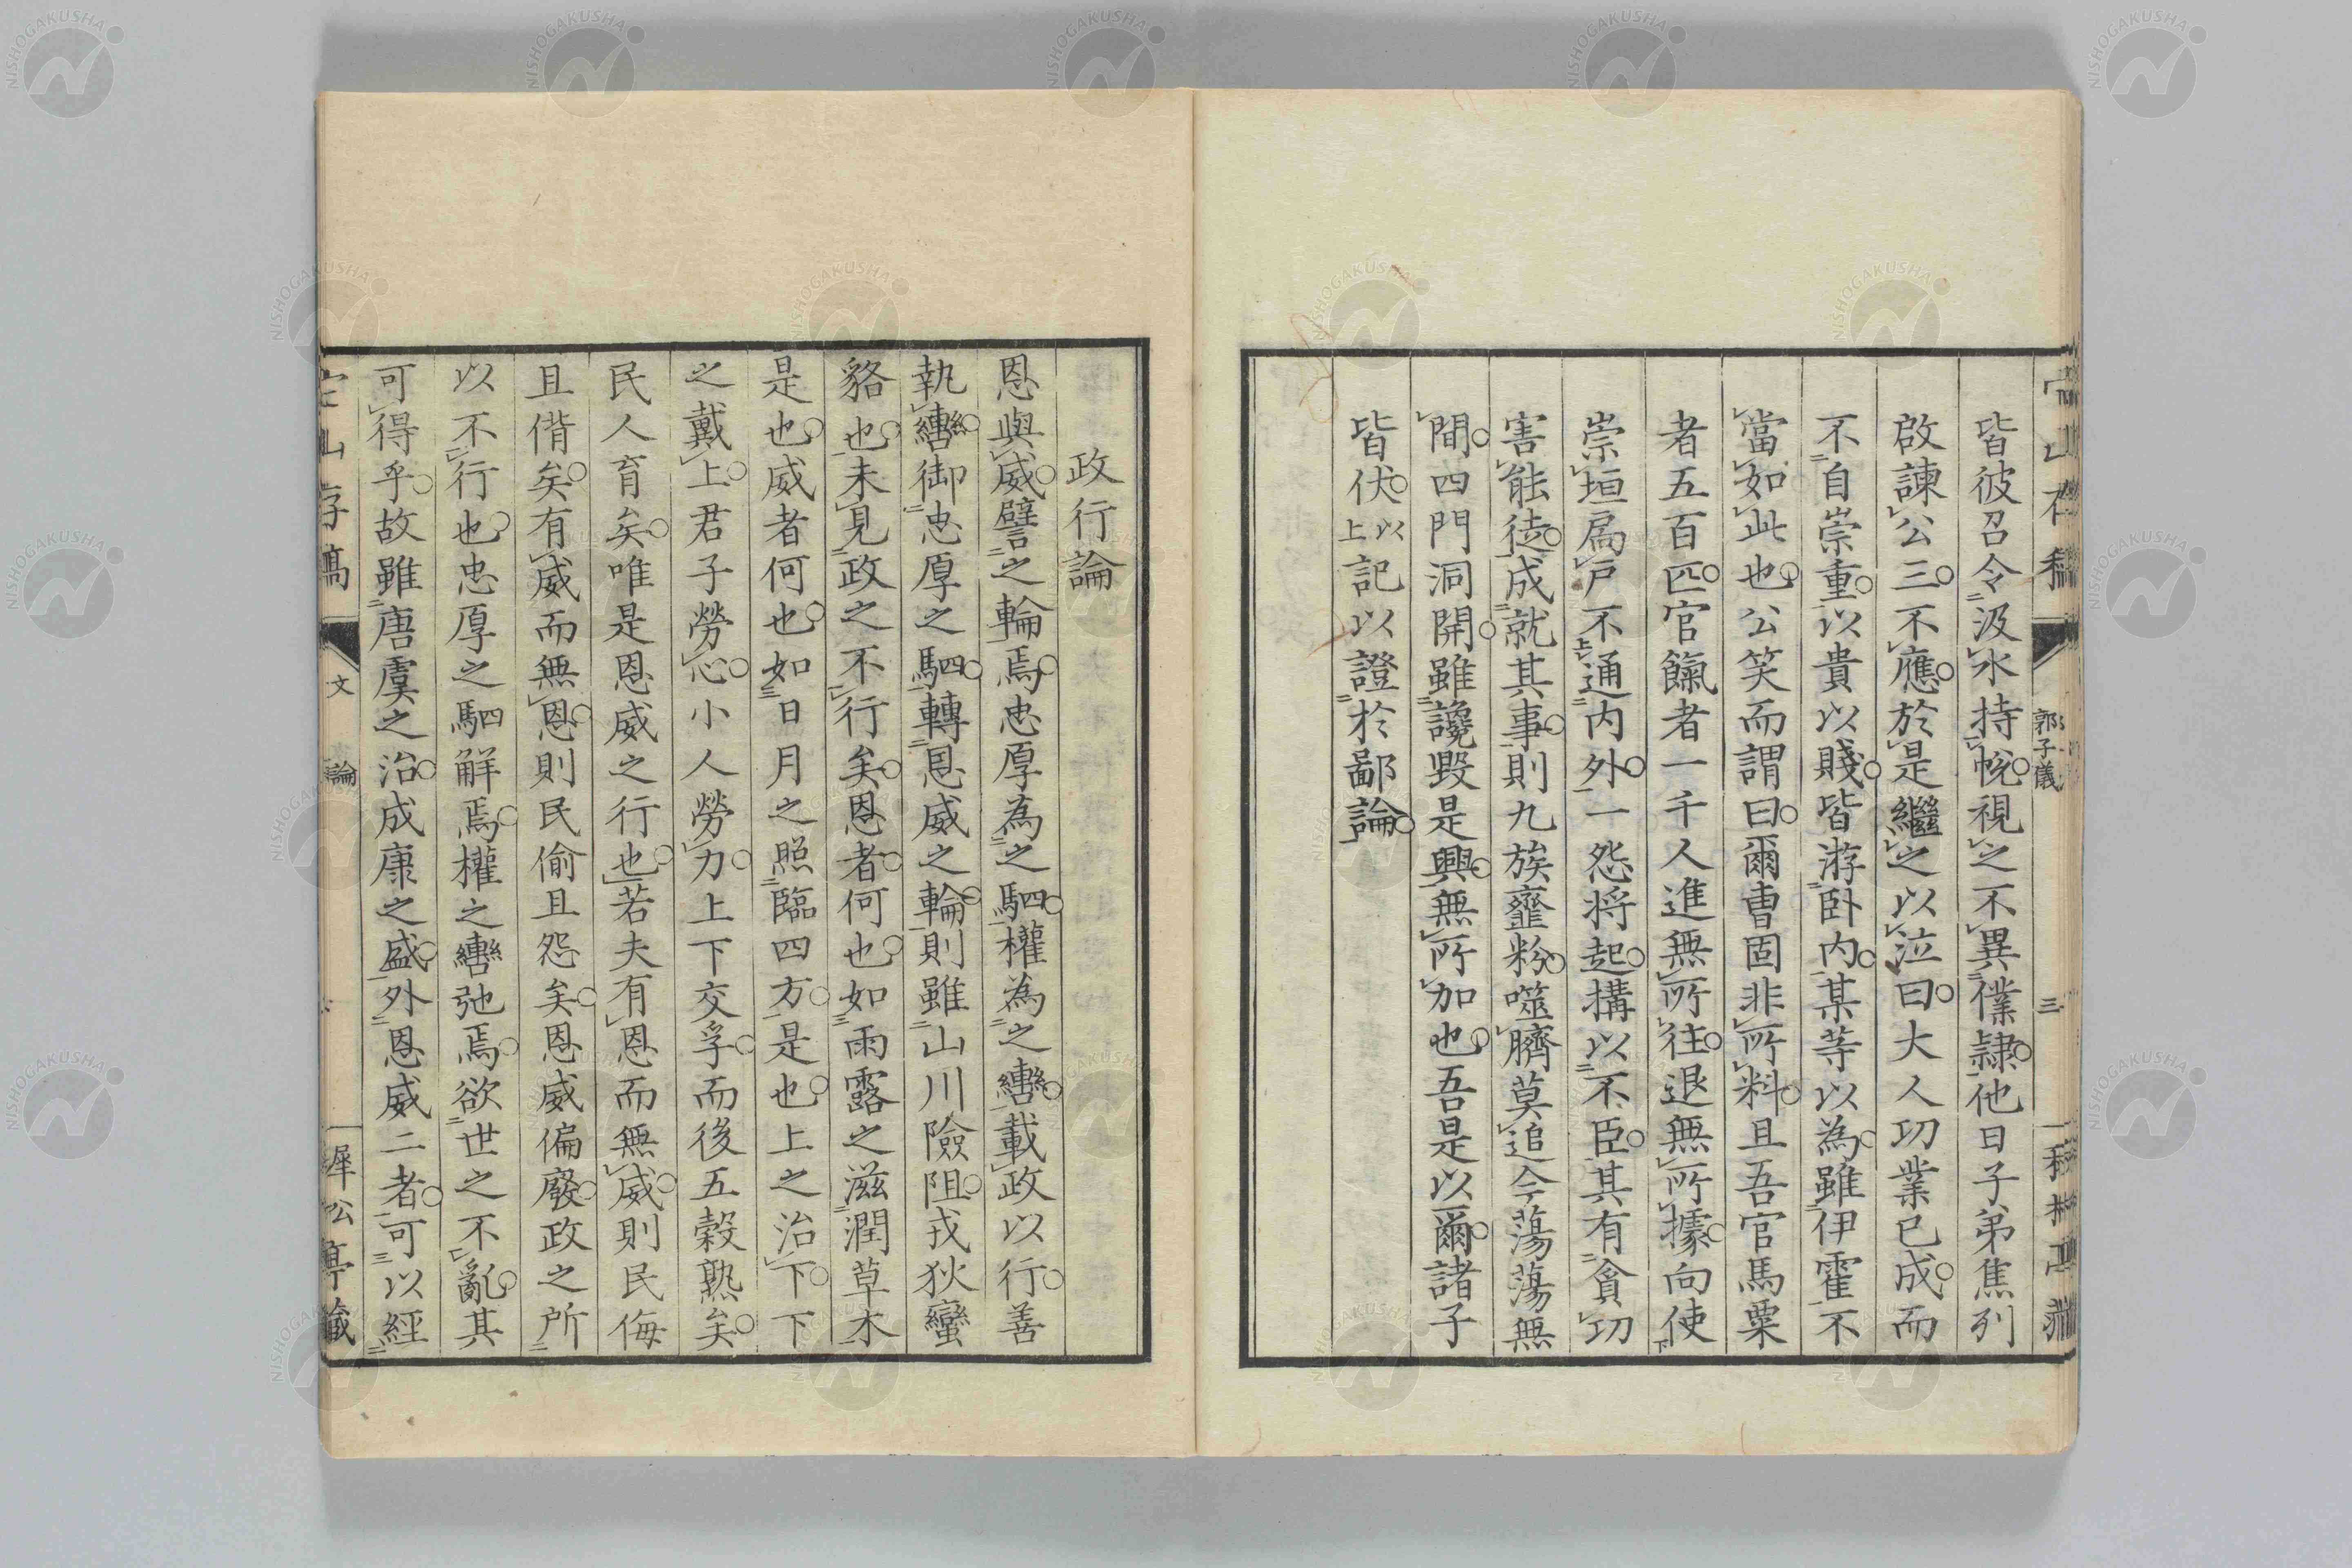 郭子儀
三
皆彼召令汲水持帨視之不異僕隷他日子弟焦列
啟諫公三不應於是繼之以泣曰大人功業已成而
不自崇重以貴以賤皆游卧内某等以為雖伊霍不
當如此也公笑而謂曰爾曹固非所料且吾官馬粟
者五百匹官餼者一千人進無所往退無所據向使
崇垣扃戸不通内外一怨将起搆以不臣其有貪功
害能徒成就其事則九族虀粉噬臍莫追今蕩蕩無
間四門洞開雖讒毀是興無所加也吾是以爾諸子
皆伏以上記以證於鄙論
政行論
恩與威譬之輪焉忠厚為之駟權為之轡載政以行善
執轡御忠厚之駟轉恩威之輪則雖山川險阻戎狄蠻
貉也未見政之不行矣恩者何也如雨露之滋潤草木
是也威者何也如日月之照臨四方是也上之治下下
之戴上君子勞心小人勞力上下交孚而後五穀熟矣
民人育矣唯是恩威之行也若夫有恩而無威則民侮
且偕矣有威而無恩則民偷且怨矣恩威偏廢政之所
以不行也忠厚之駟解焉權之轡弛焉欲世之不亂其
可得乎故雖唐虞之治成康之盛外恩威二者可以經
文
論
NISHOGAKUSHA